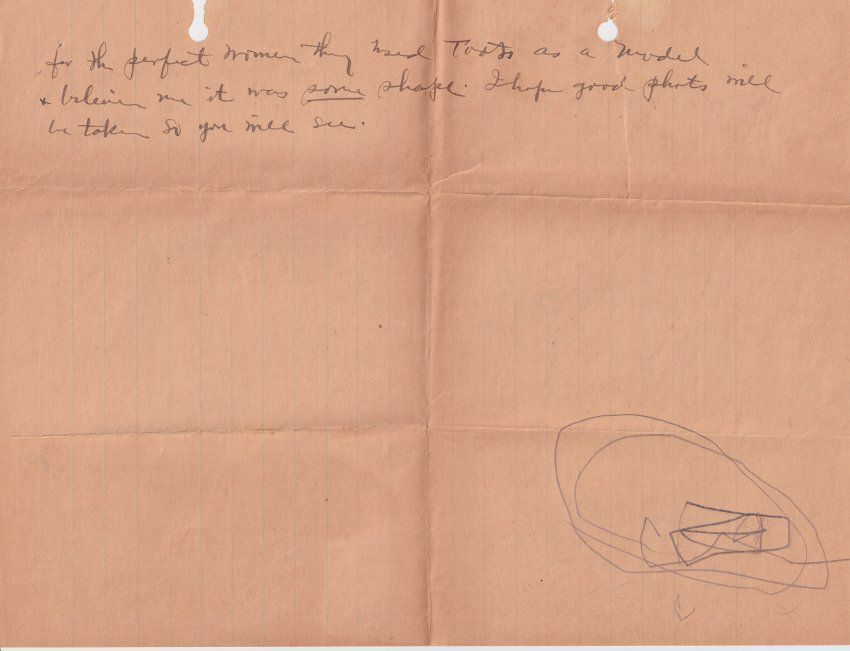 for the perfect women they used Toots as a model
+ believe me it was some shape. I hope good phots will
be taken so you will see.